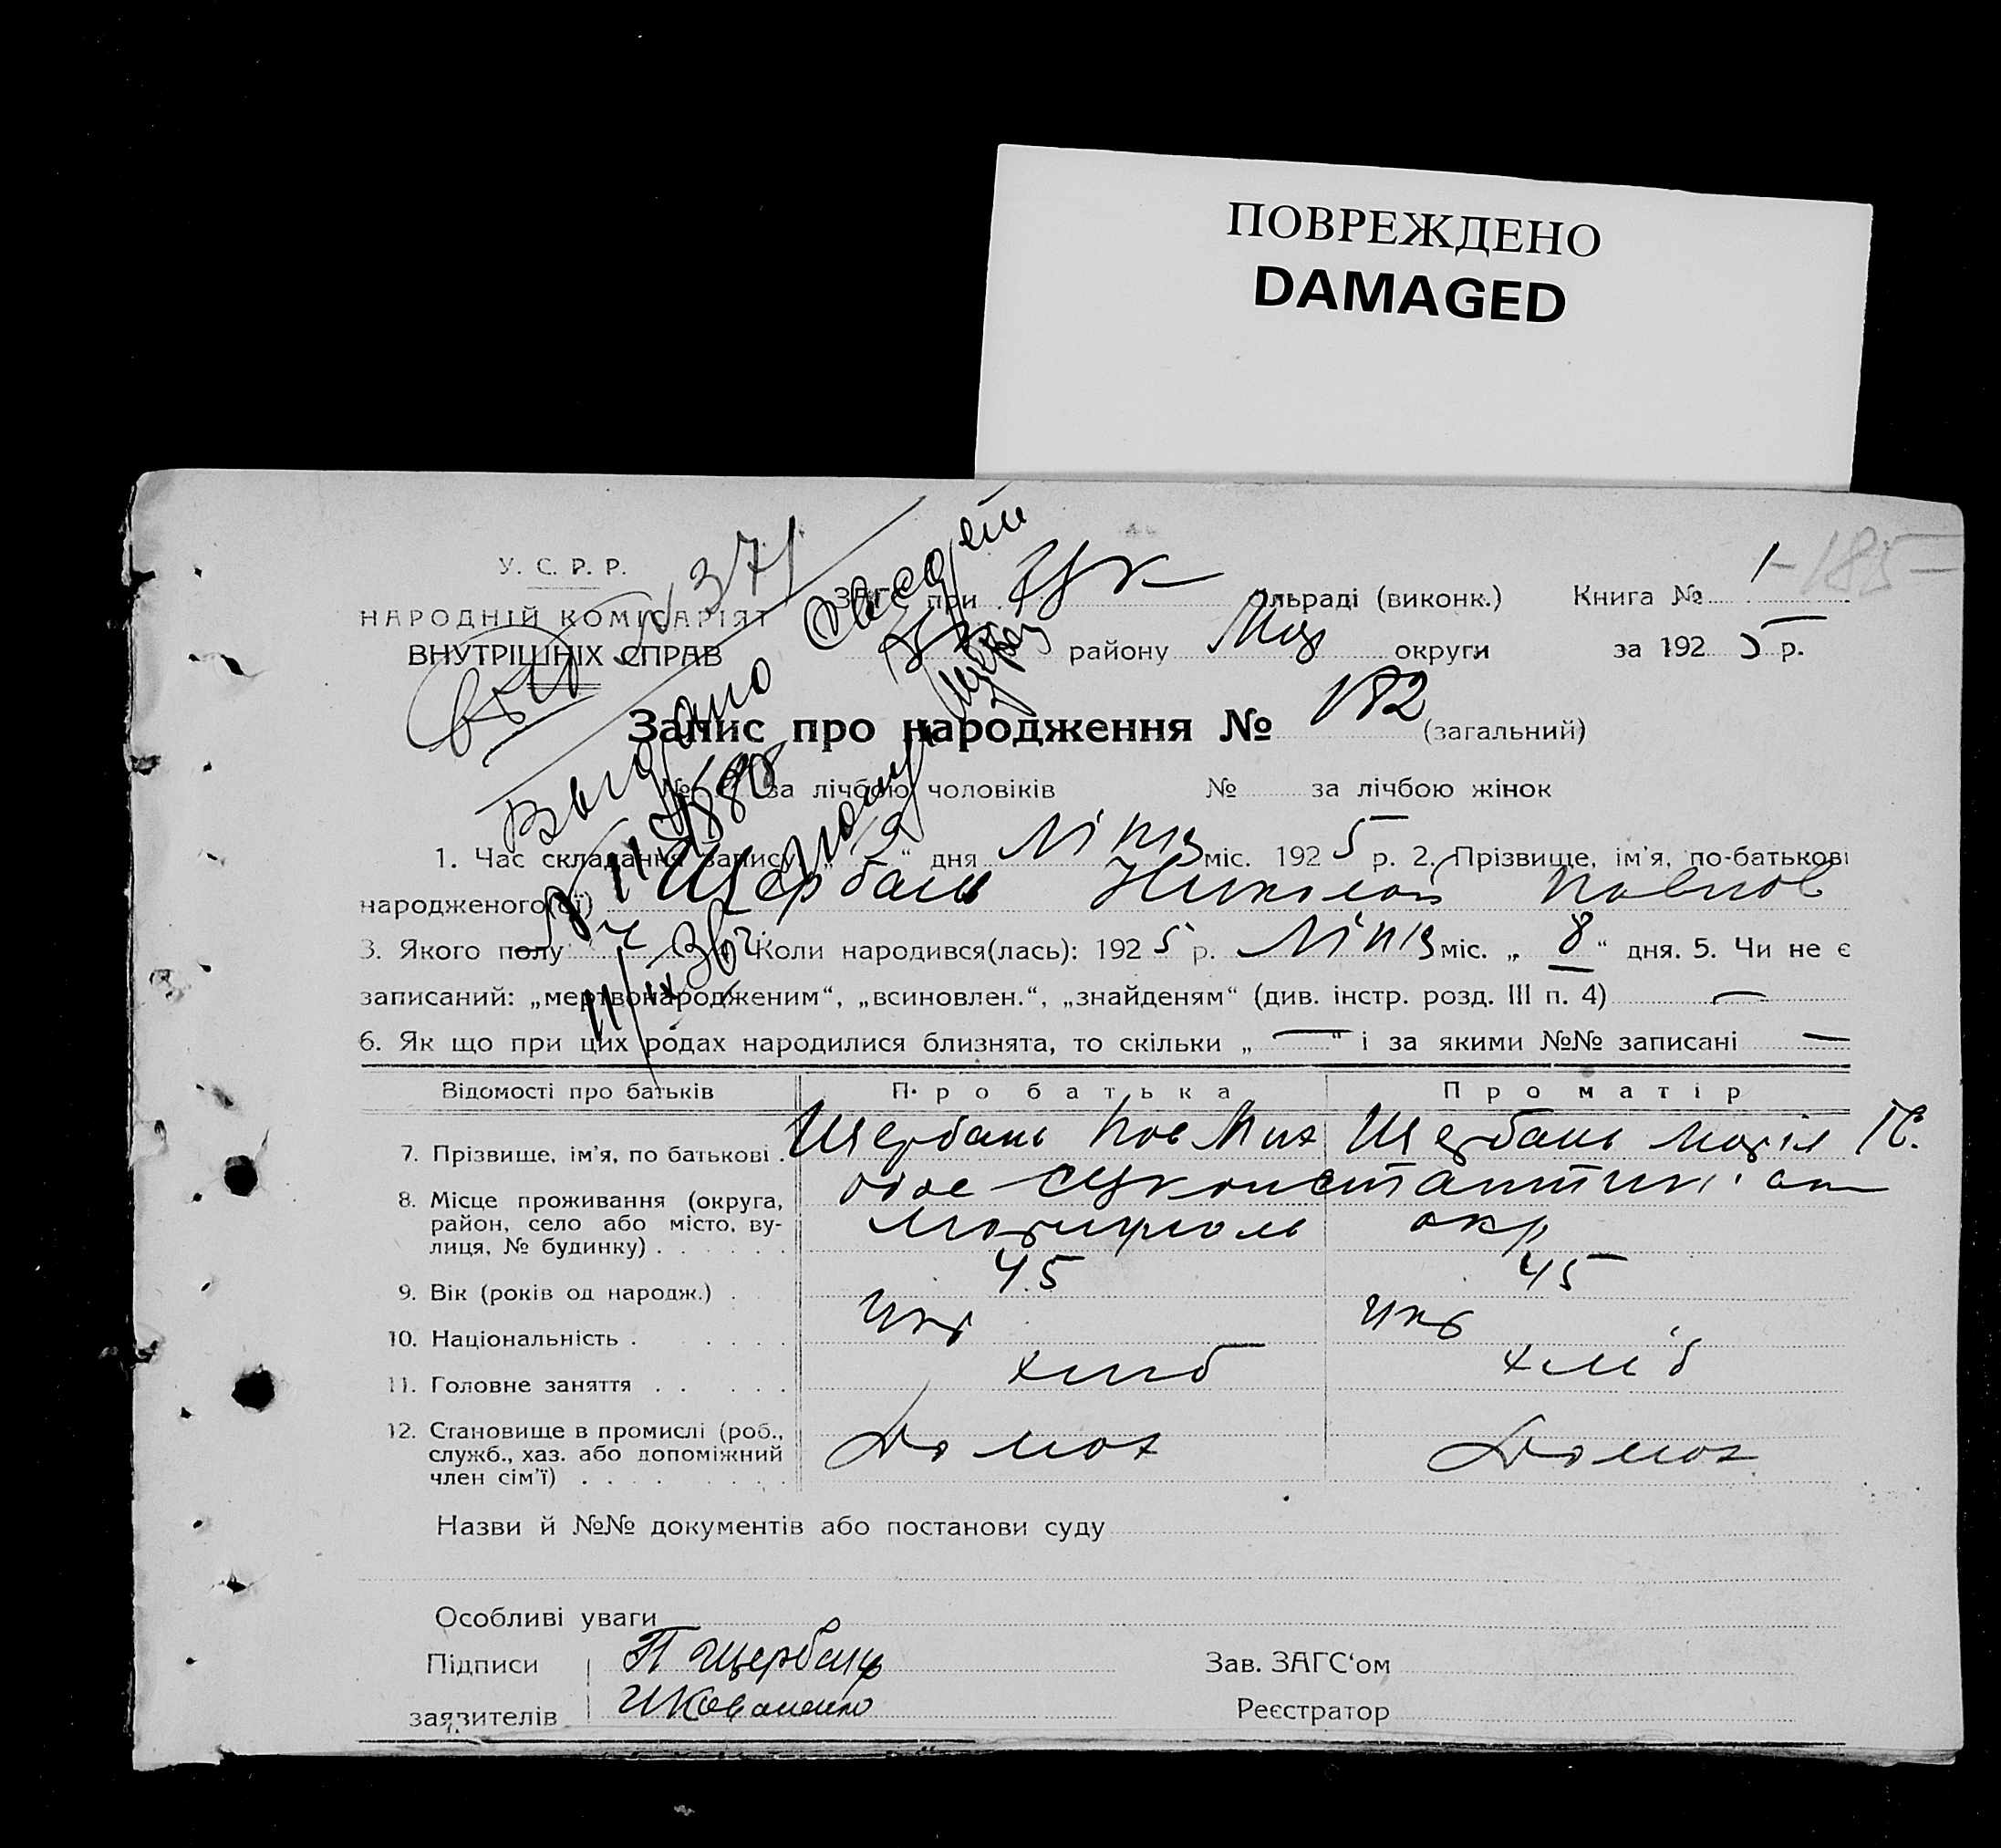 ПОВРЕЖДЕНО
DAMAGED
-185-
У. С. Р. Р.
НАРОДНІЙ КОМІСАРІЯТ
ВНУТРІШНІХ СПРАВ
№ 371
ЗАГС при Цук сільраді (виконк.) Книга № 1
району Мар округи за 1925 р.
Запис про народження № 182 (загальний)
№ за лічбою чоловіків № за лічбою жінок
Выдано
1. Час складання запису „ “ дня Ліпня міс. 1925 р. 2. Прізвище, ім'я, по-батькові
народженого(ої) Щербань Николай Павлов
3. Якого полу ч 4. Коли народився(лась): 1925 р. Ліпня міс. „ 8 “ дня. 5. Чи не є
записаний: „мертвонародженим“, „всиновлен.“, „знайденям“ (див. інстр. розд. III п. 4) —
6. Як що при цих родах народилися близнята, то скільки „ — “ і за якими №№ записані —
Відомості про батьків Про батька Про матір
7. Прізвище, ім'я, по батькові . Щербань Пав Мих Щербань Марія К.
8. Місце проживання (округа,
район, село або місто, ву-
лиця, № будинку) . . . . . . Маріуполь окр
9. Вік (років од народж.) . 45 45
10. Національність . Укр Укр
11. Головне заняття . . хліб хліб
12. Становище в промислі (роб.,
служб., хаз. або допоміжний
член сім'ї) . . . . . . Домох Домох
Назви й №№ документів або постанови суду
Особливі уваги
Підписи П Щербань Зав. ЗАГС‘ом
заявителів И Коваленко Реєстратор